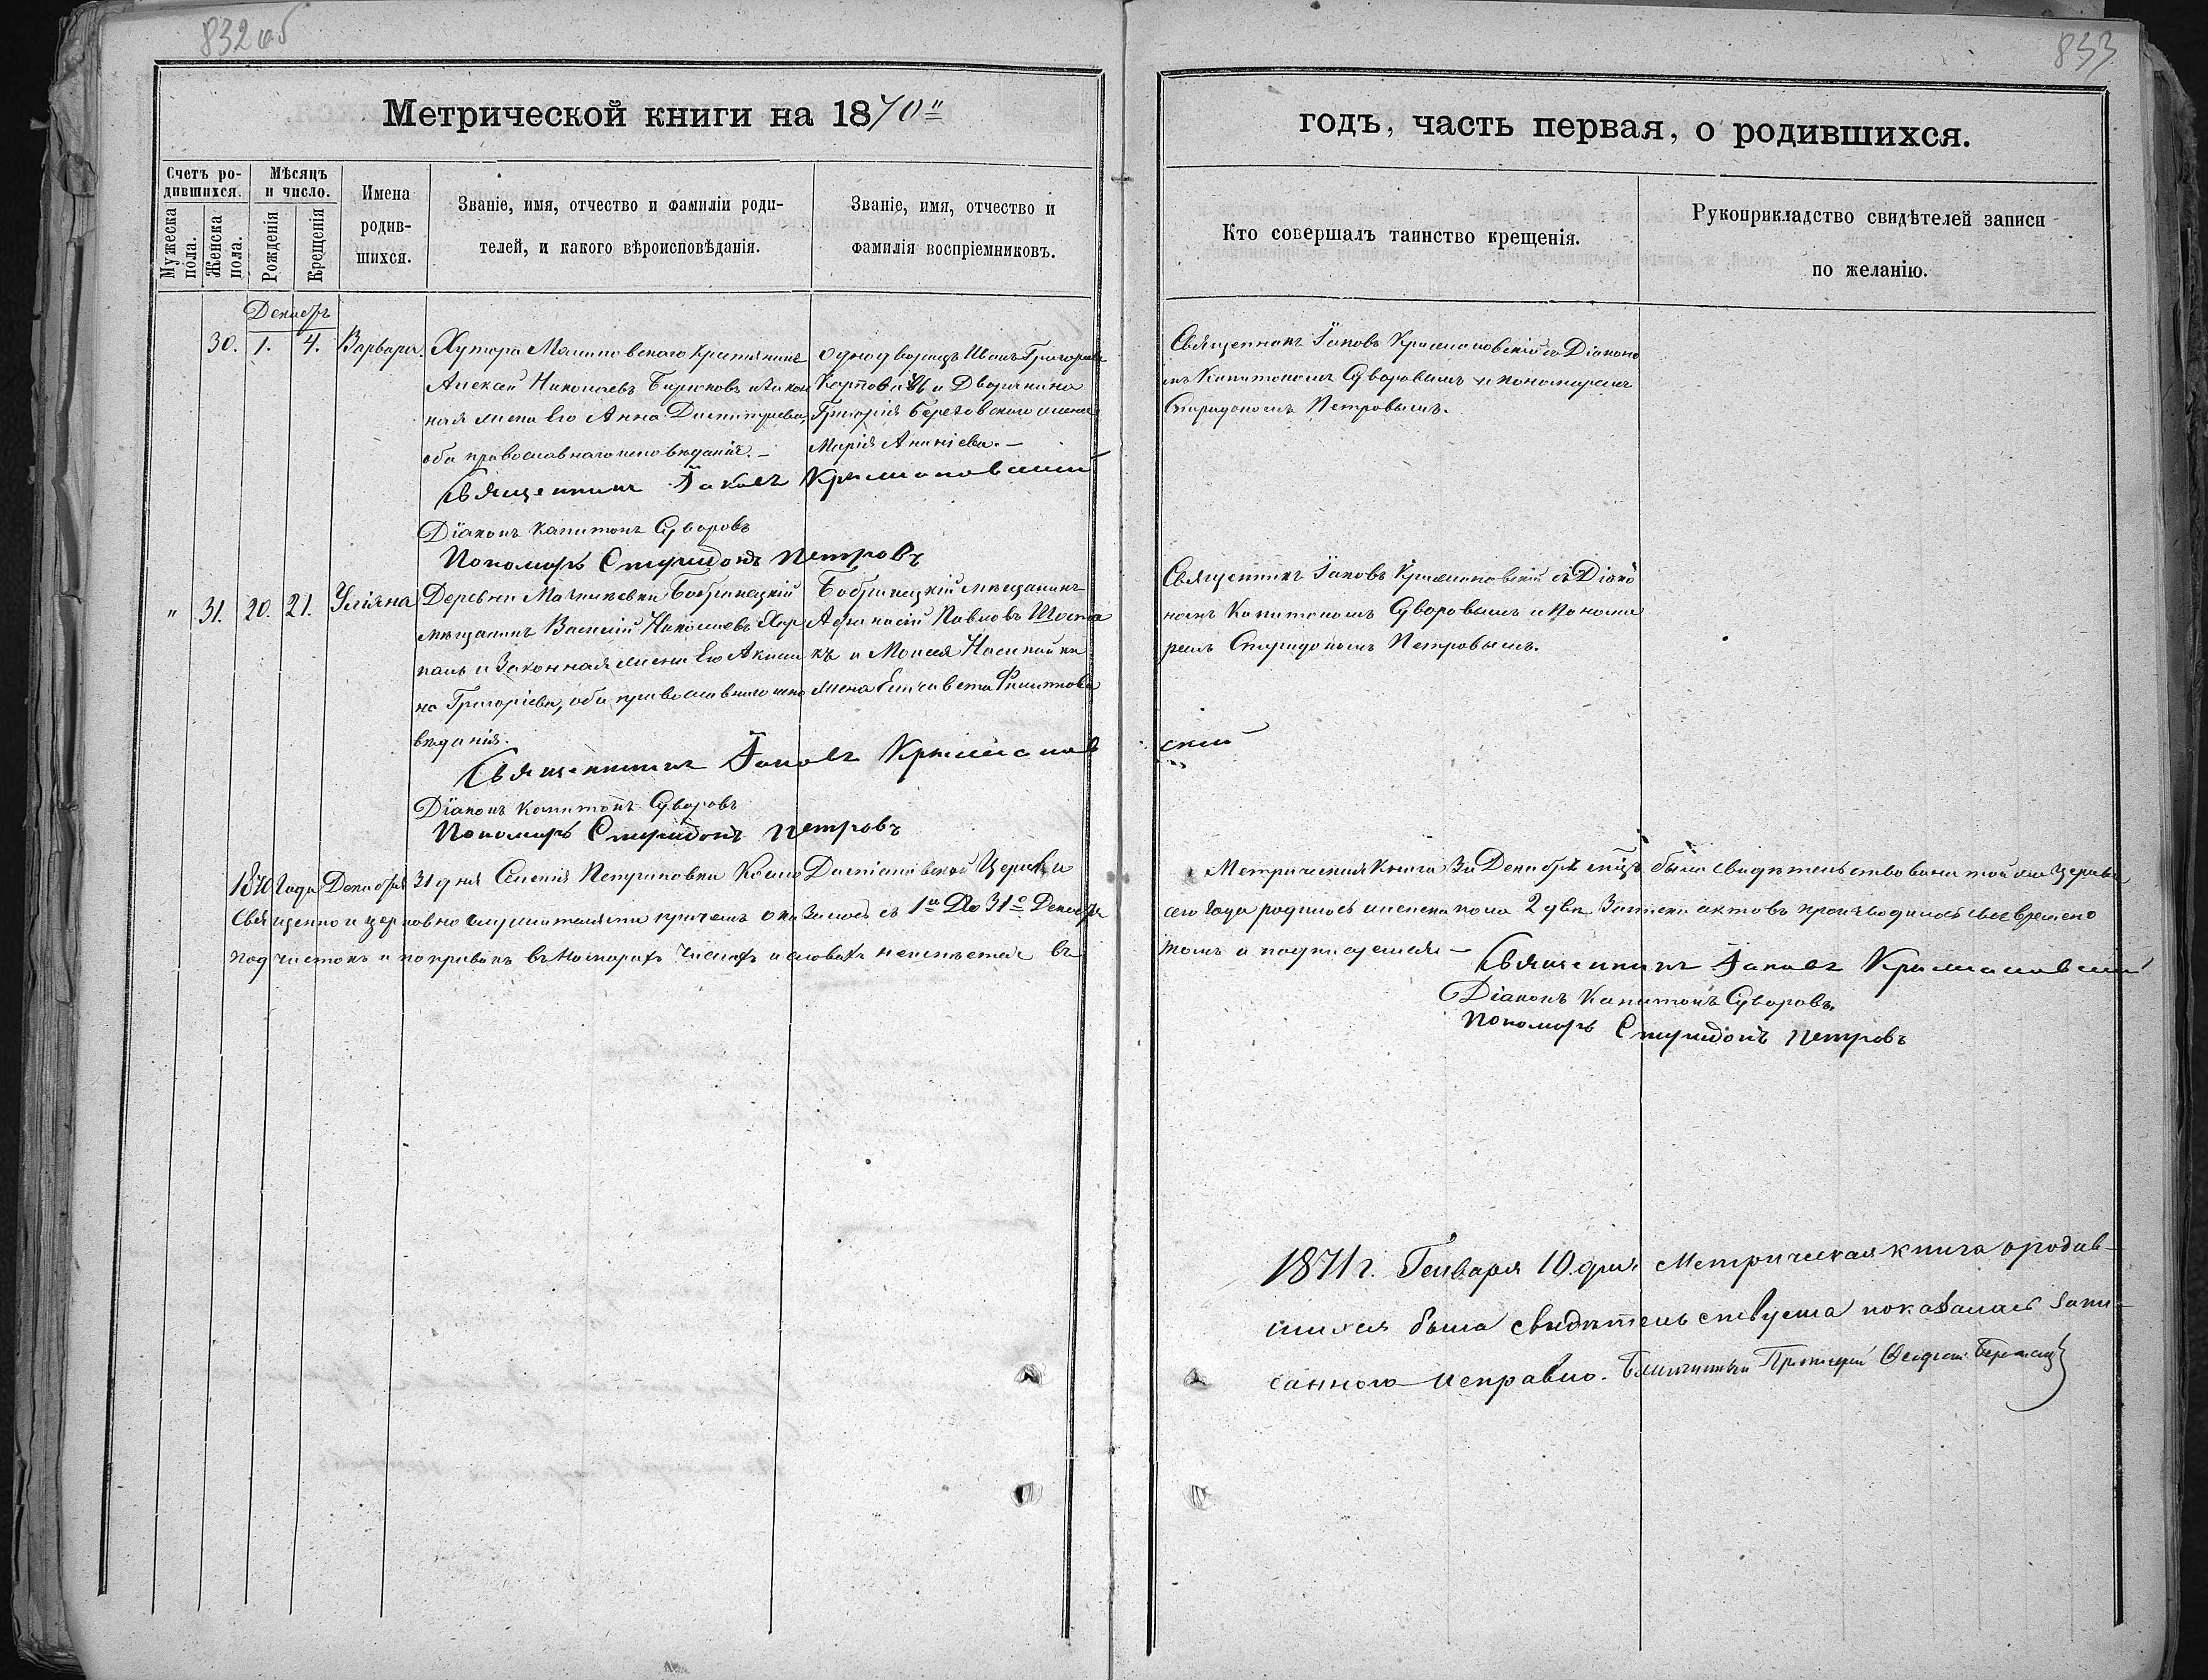 832 об
833
Метрической книги на 1870
годъ, часть первая, о родившихся.
Счетъ ро-
дившихся.
Мужеска
пола.
Женска
пола.
Мѣсяцъ
и число.
Рожденія
Крещенія
Имена
родив-
шихся.
Званіе, имя, отчество и фамиліи роди-
телей, и какого вѣроисповѣданія.
Званіе, имя, отчество и
фамилія воспріемниковъ.
Кто совершалъ таинство крещенія.
Рукоприкладство свидѣтелей записи
по желанію.
Декабрь
30. 1. 4. Варвара.
Хутора Крестьянинъ
Алексей Николаевъ Бирюковъ и закон
ная жена Его Анна Димитриева,
оба православнаго исповѣданія. –
однодворецъ Иванъ Григорьевъ
и Дворянина
Григорія Березовскаго жена
Марія Ананіева. –
Священникъ Іаковъ съ Діаконо
мъ Капитономъ Суворовымъ и пономаремъ
Спиридономъ Петровымъ.
Священникъ Іаковъ
Діаконъ Капитонъ Суворовъ
Пономарь Спиридонъ Петровъ
" 31. 20. 21. Уліяна
Деревни Бобринецкій
мѣщанинъ Василій Николаевъ
и Законная жена Его Акили
на Григоріева, оба православнаго испо
вѣданія.
Бобринецкій мѣщанинъ
Афанасій Павловъ
и Моисея
жена Елисавета Филиппова
Священникъ Іаковъ съ Діако
номъ Капитономъ Суворовымъ и Понома
ремъ Спиридономъ Петровымъ.
Священникъ Іаковъ
скій
Діаконъ Капитонъ Суворовъ
Пономарь Спиридонъ Петровъ
1870 Года Декабря 31 дня Селенія Косьмо Даміановской Церкви
Священно и церковно служителями причемъ оказалось съ 1го До 31го Декабря
подчистокъ и поправокъ въ которыхъ числахъ и словахъ неимѣется въ
Метрическая Книга За Декабрь была свидѣтельствована той же Церкви
сего Года родилось женска пола 2 двѣ Записки актовъ производилось своевремено
томъ и подписуемся –
Священникъ Іаковъ
Діаконъ Капитонъ Суворовъ.
Пономарь Спиридонъ Петровъ
1871 г. Генваря 10. дня Метрическая книга о родив-
шихся была свидѣтельствуема показалась запи-
санною исправно. Благочинный Протоіерей